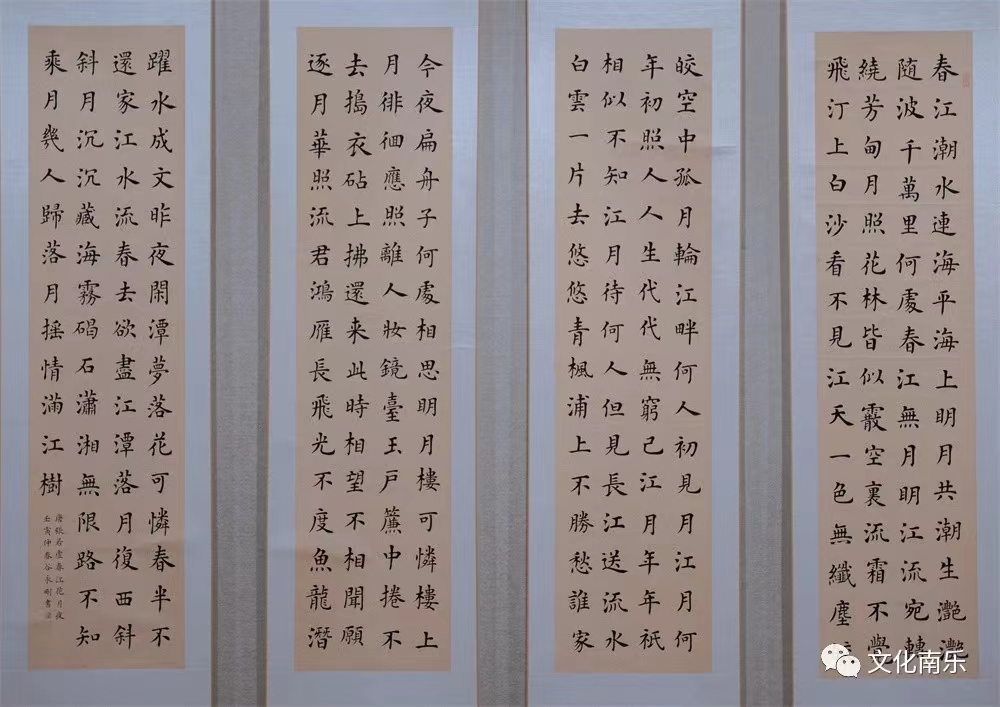 春江潮水連海平海上明月共潮生灩灩
随波千萬里何處春江無月明江流宛轉
繞芳甸月照花林皆似霰空裏流霜不覺
飛汀上白沙看不見江天一色無纖塵
皎空中孤月輪江畔何人初見月江月何
年初照人人生代代無窮已江月年年祇
相似不知江月待何人但見長江送流水
白雲一片去悠悠青楓浦上不勝愁誰家
今夜扁舟子何處相思明月樓可憐樓上
月徘徊應照離人妝鏡臺玉戶簾中捲不
去搗衣砧上拂還来此時相望不相聞願
逐月華照流君鴻雁長飛光不度魚龍潛
躍水成文昨夜閑潭夢落花可憐春半不
還家江水流春去欲盡江潭落月復西斜
斜月沉沉藏海霧碣石瀟湘無限路不知
乘月幾人歸落月摇情滿江樹
唐張若虛春江花月夜
壬寅仲春谷長剛書
文化南乐